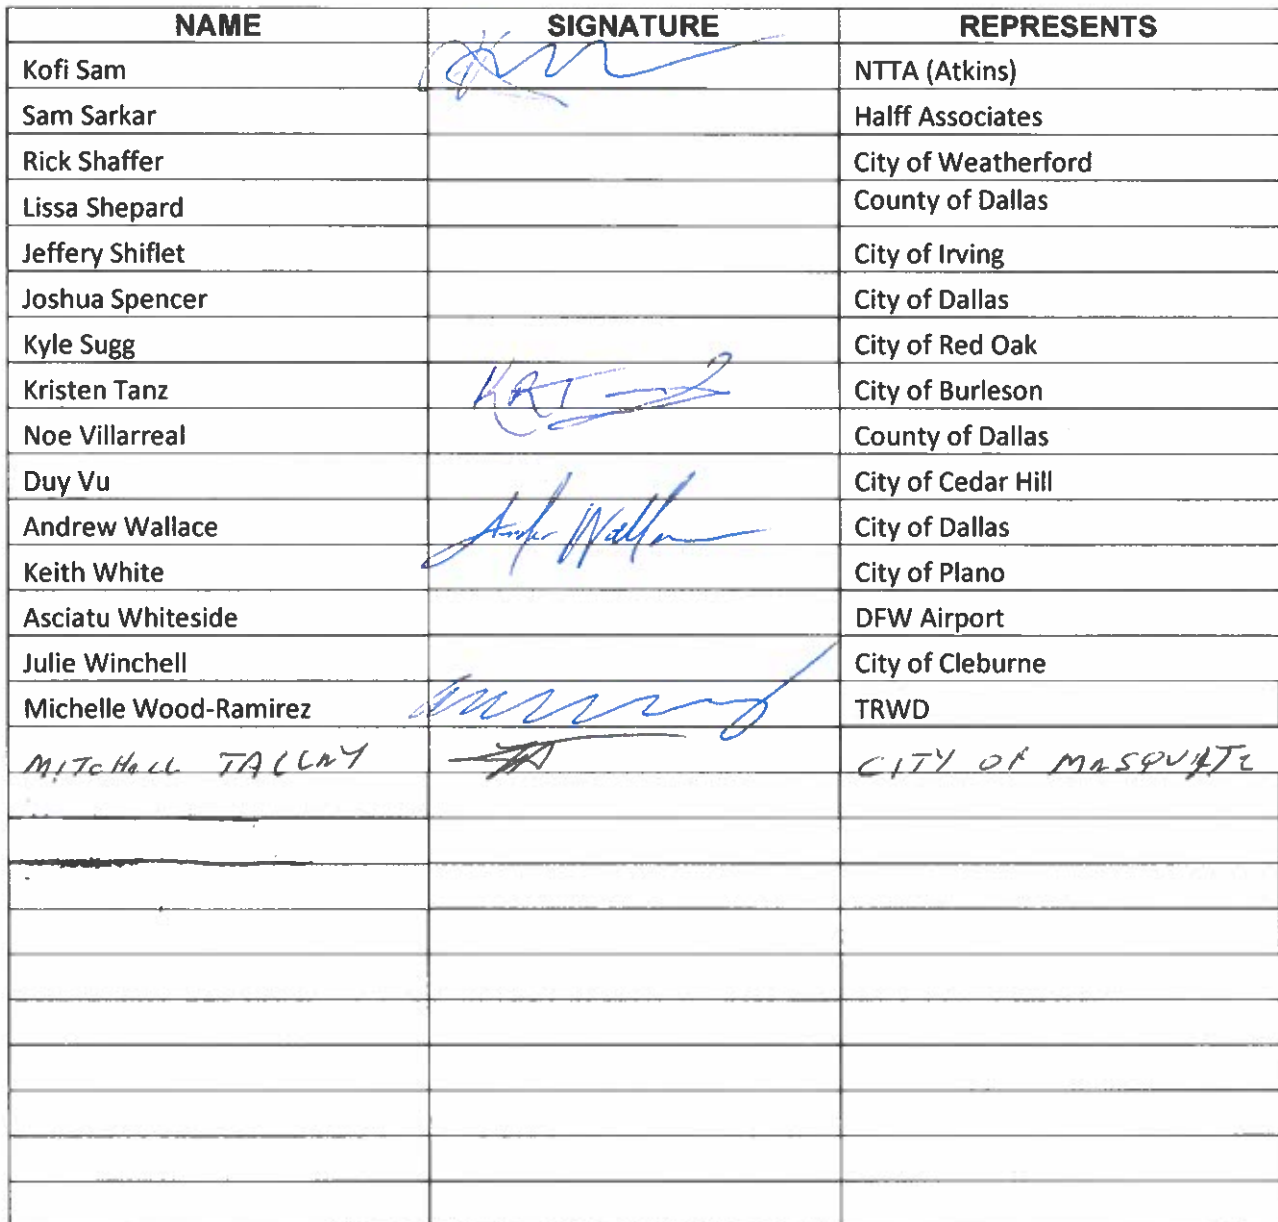 NAME SIGNATURE REPRESENTS
Kofi Sam NTTA (Atkins)
Sam Sarkar Halff Associates
Rick Shaffer City of Weatherford
Lissa Shepard County of Dallas
Jeffery Shiflet City of Irving
Joshua Spencer City of Dallas
Kyle Sugg City of Red Oak
Kristen Tanz KRT City of Burleson
Noe Villarreal County of Dallas
Duy Vu City of Cedar Hill
Andrew Wallace City of Dallas
Keith White City of Plano
Asciatu Whiteside DFW Airport
Julie Winchell City of Cleburne
Michelle Wood-Ramirez TRWD
MITCHELL CITY OF